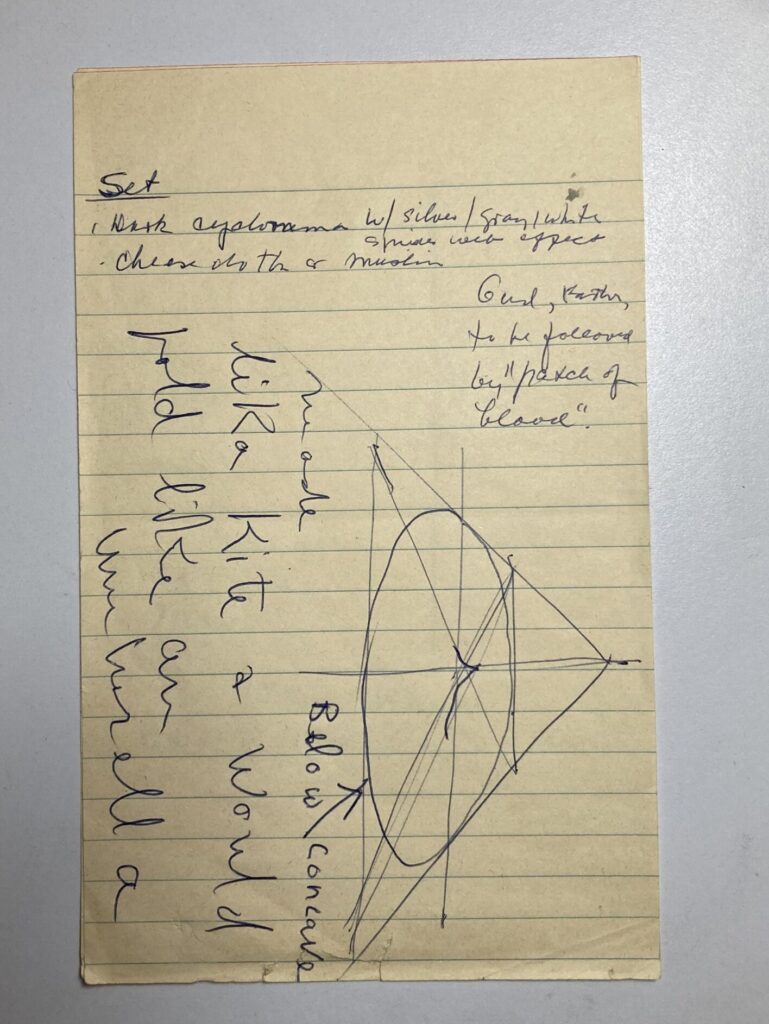 Set
· Dark cyclorama w/ silver/gray/white
spider web effect
· Cheese cloth or muslin
to be followed
by "patch of
blood".
made
like kite & would
fold like an
umbrella
Below
Concave